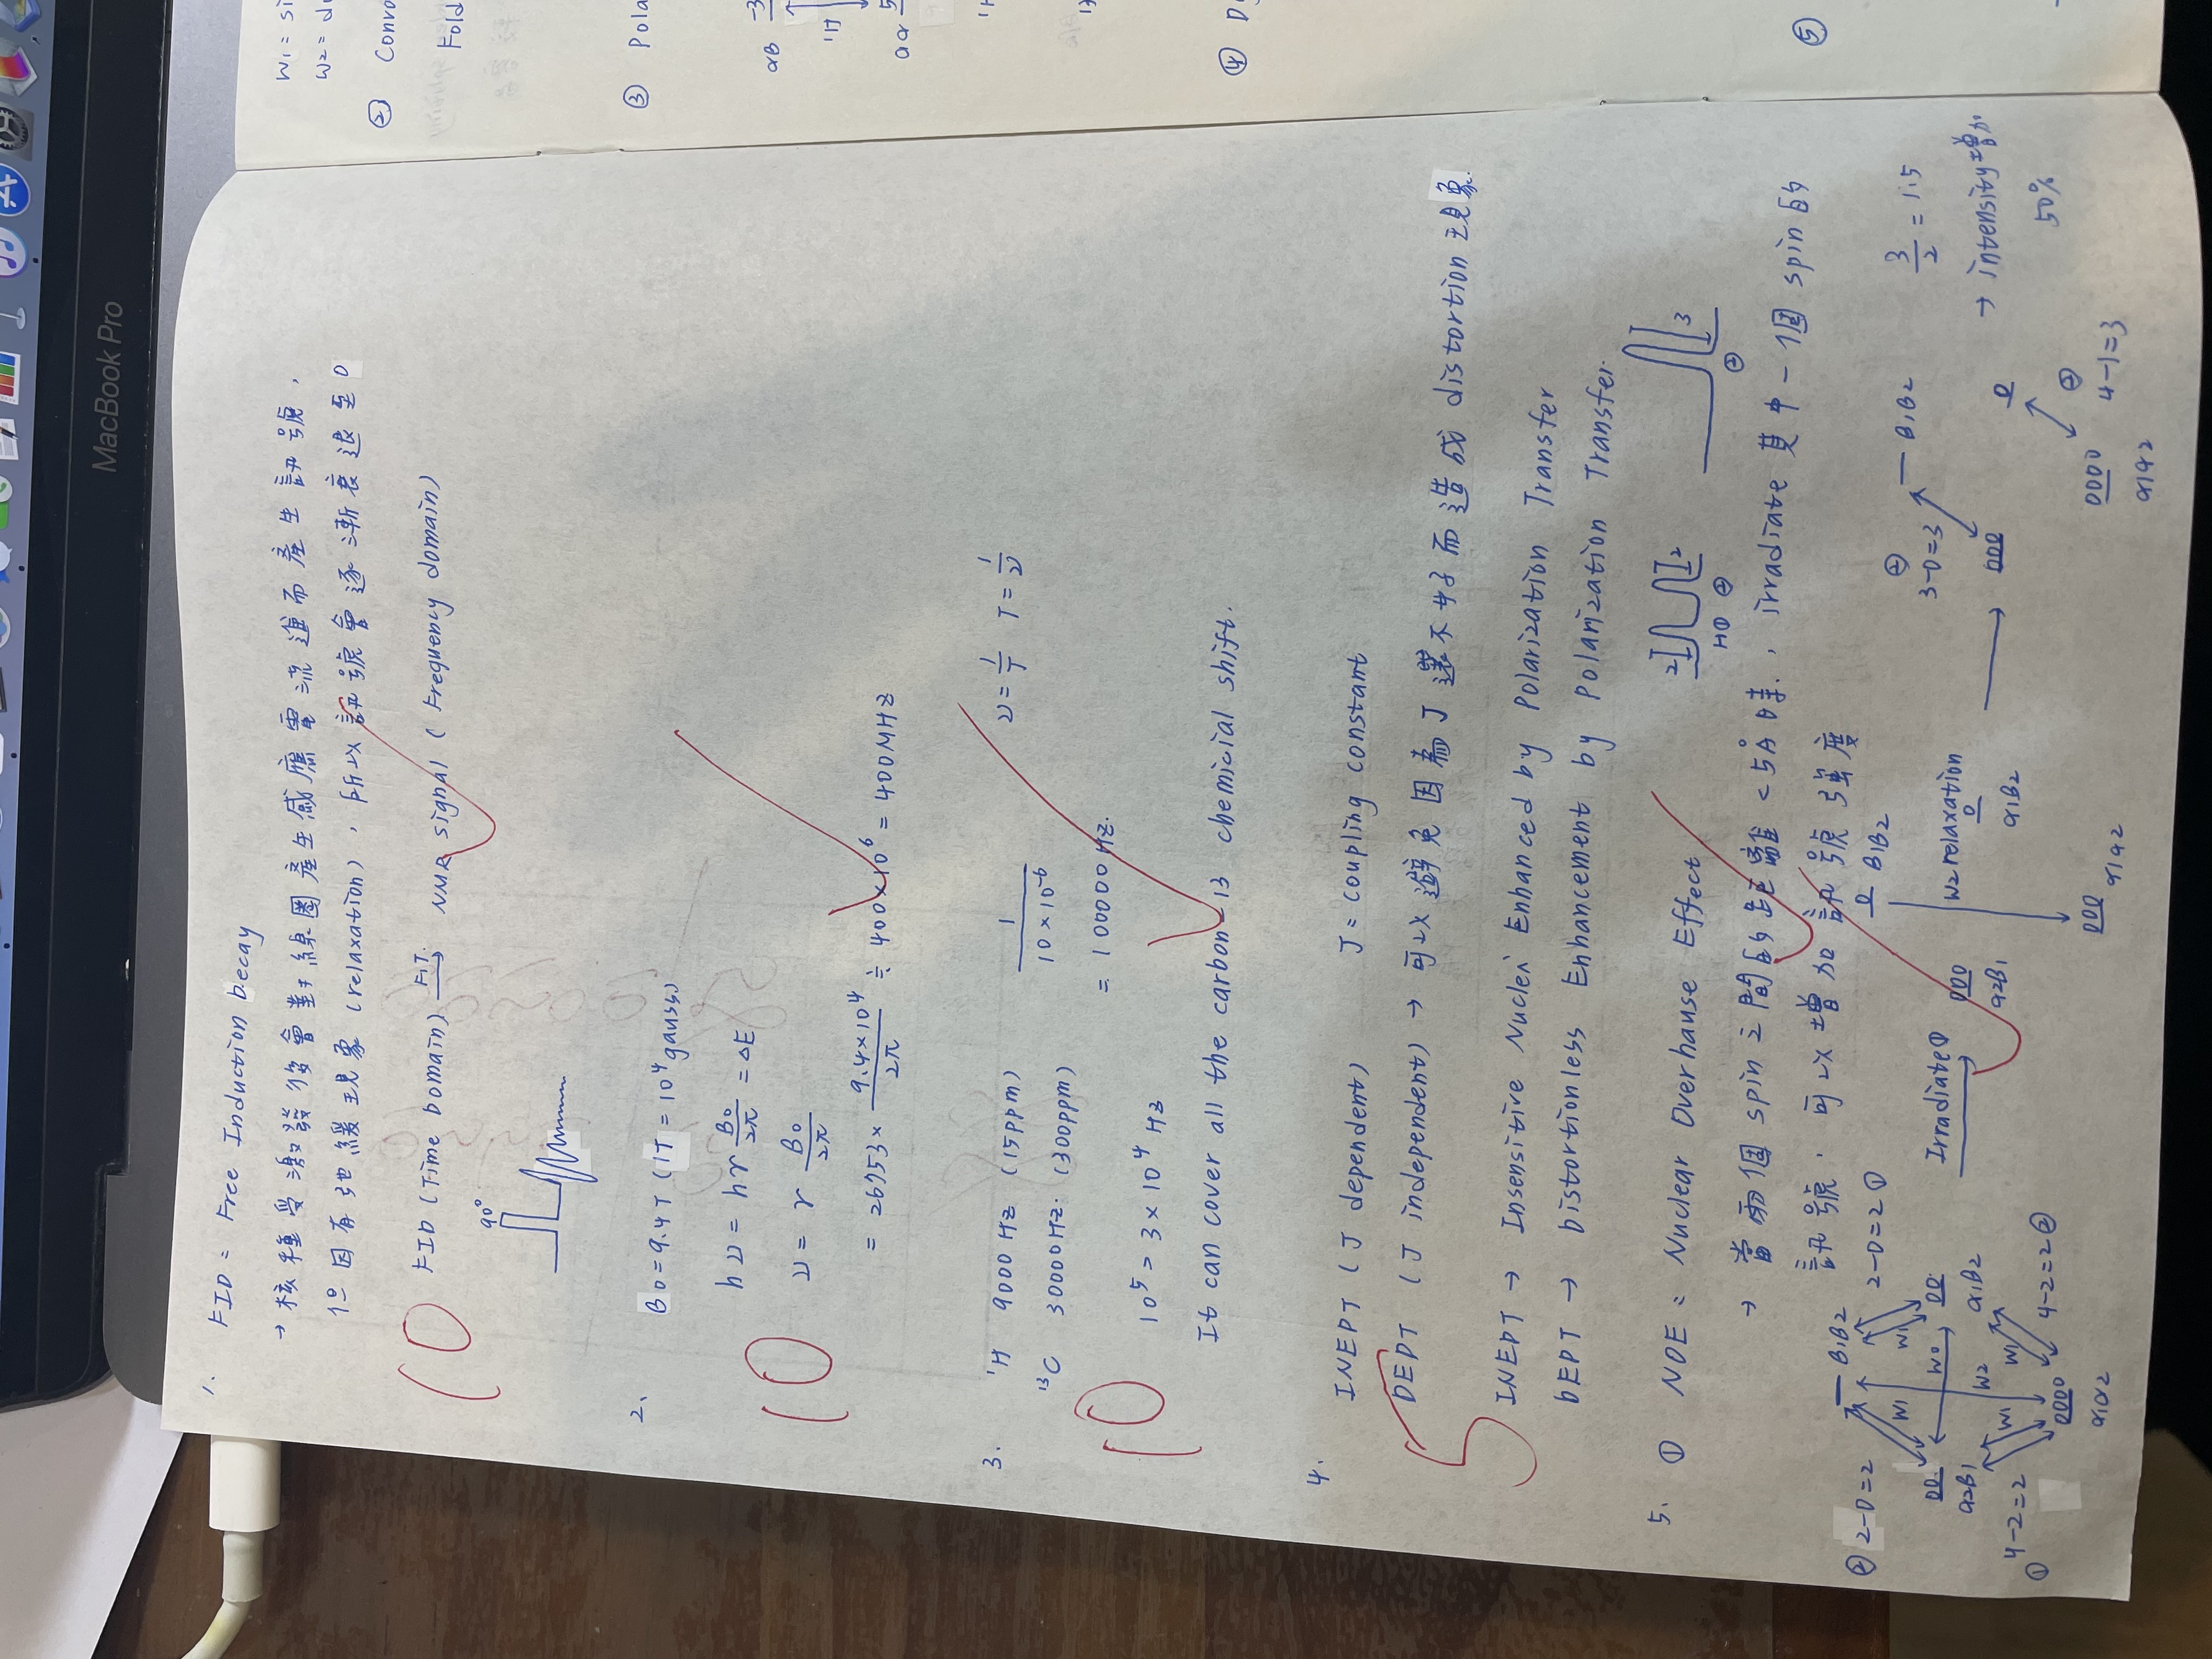 MacBook Pro
1.
FID = Free Induction Decay
→ 核種受激發後會對線圈產生感應電流進而產生訊號，
但因有弛緩現象 (relaxation)，所以訊號會逐漸衰退至0
10
FID (Time Domain) F.T. → NMR signal ( Frequency domain)
90°
2、
B0 = 9.4 T (1T = 10⁴ gauss)
hν = hγ B0/2π = ΔE
10
ν = γ B0/2π
= 26753 × 9.4×10⁴/2π ≑ 400×10⁶ = 400MHz
3.
¹H 9000 Hz (15ppm)
¹³C 30000Hz. (300ppm)
1/10×10⁻⁶
= 100000 Hz.
ν = 1/T T = 1/ν
10
10⁵ > 3 × 10⁴ Hz
It can cover all the carbon-13 chemicial shift.
4.
INEPT ( J dependent) J = coupling constant
DEPT ( J independent) → 可以避免因為J選不好而造成 distortion 現象.
5
INEPT → Insensitive Nuclei Enhanced by Polarization Transfer
DEPT → Distortionless Enhancement by Polarization Transfer.
5. ① NOE = Nuclear Overhause Effect
2 2
H① ②
3
②
→ 當兩個 spin 之間的距離 < 5Å 時，irradiate 其中一個 spin 的
訊號，可以增加訊號強度
β1β2
② 2-0=2
2-0=2 ①
W1 W1
W0
α2β1 α1β2
W2
W1 W1
4-2=2
①
4-2=2 ②
α1α2
Irradiate①
β1β2
α2β1
W2 relaxation
α1β2
α1α2
②
3-0=3
β1β2
②
4-1=3
α1α2
3/2 = 1.5
→ intensity增加
50%
W1 =
W2 =
②
③
αβ
¹H
αα 5
④
⑤